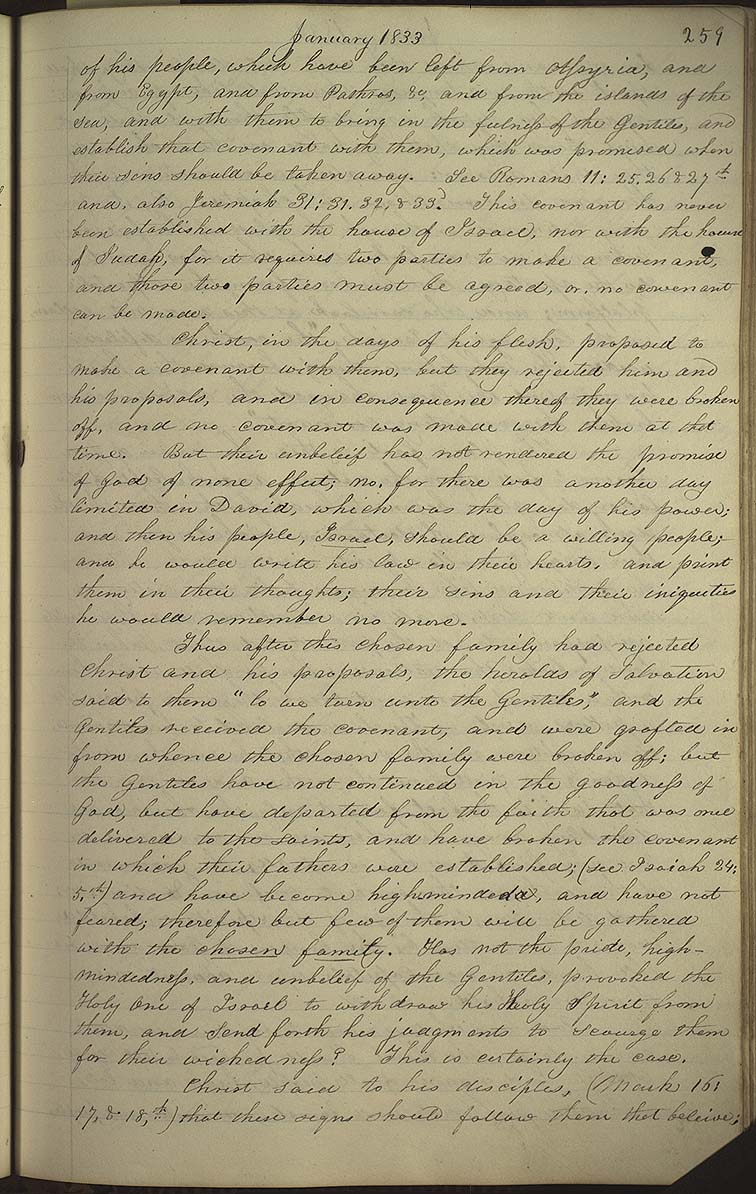 January 1833 259
of his people, which have been left from Assyria, and
from Egypt, and from Pathros, &c, and from the islands of the
sea, and with them to bring in the fulness of the Gentiles, and
establish that covenant with them, which was promised when
their sins should be taken away. See Romans 11: 25. 26 & 27th
and, also Jeremiah 31: 31. 32, & 33. This covenant has never
been established with the house of Israel, nor with the house
of Judah, for it requires two parties to make a covenant,
and those two parties must be agreed, or, no covenant
can be made.
Christ, in the days of his flesh, proposed to
make a covenant with them, but they rejected him and
his proposals, and in consequence thereof they were broken
off, and no covenant was made with them at that
time. But their unbeleif has not rendered the promise
of God of none effect; no, for there was another day
limited in David, which was the day of his power;
and then his people, Israel, should be a willing people;
and he would write his law in their hearts, and print
them in their thoughts; their sins and their iniquities
he would remember no more.
Thus after this chosen family had rejected
Christ and his proposals, the heralds of Salvation
said to them "lo we turn unto the Gentiles," and the
Gentiles received the covenant, and were grafted in
from whence the chosen family were broken off; but
the Gentiles have not continued in the goodness of
God, but have departed from the faith that was once
delivered to the saints, and have broken the covenant
in which their fathers were established; (see Isaiah 24:
5.th) and have become highminded, and have not
feared; therefore but few of them will be gathered
with the chosen family. Has not the pride, high-
mindedness, and unbelief of the Gentiles, provoked the
Holy One of Israel to withdraw his Holy Spirit from
them, and send forth his judgments to scourge them
for their wickedness? This is certainly the case.
Christ said to his disciples, (Mark 16:
17, & 18,th) that these signs should follow them that beleive;